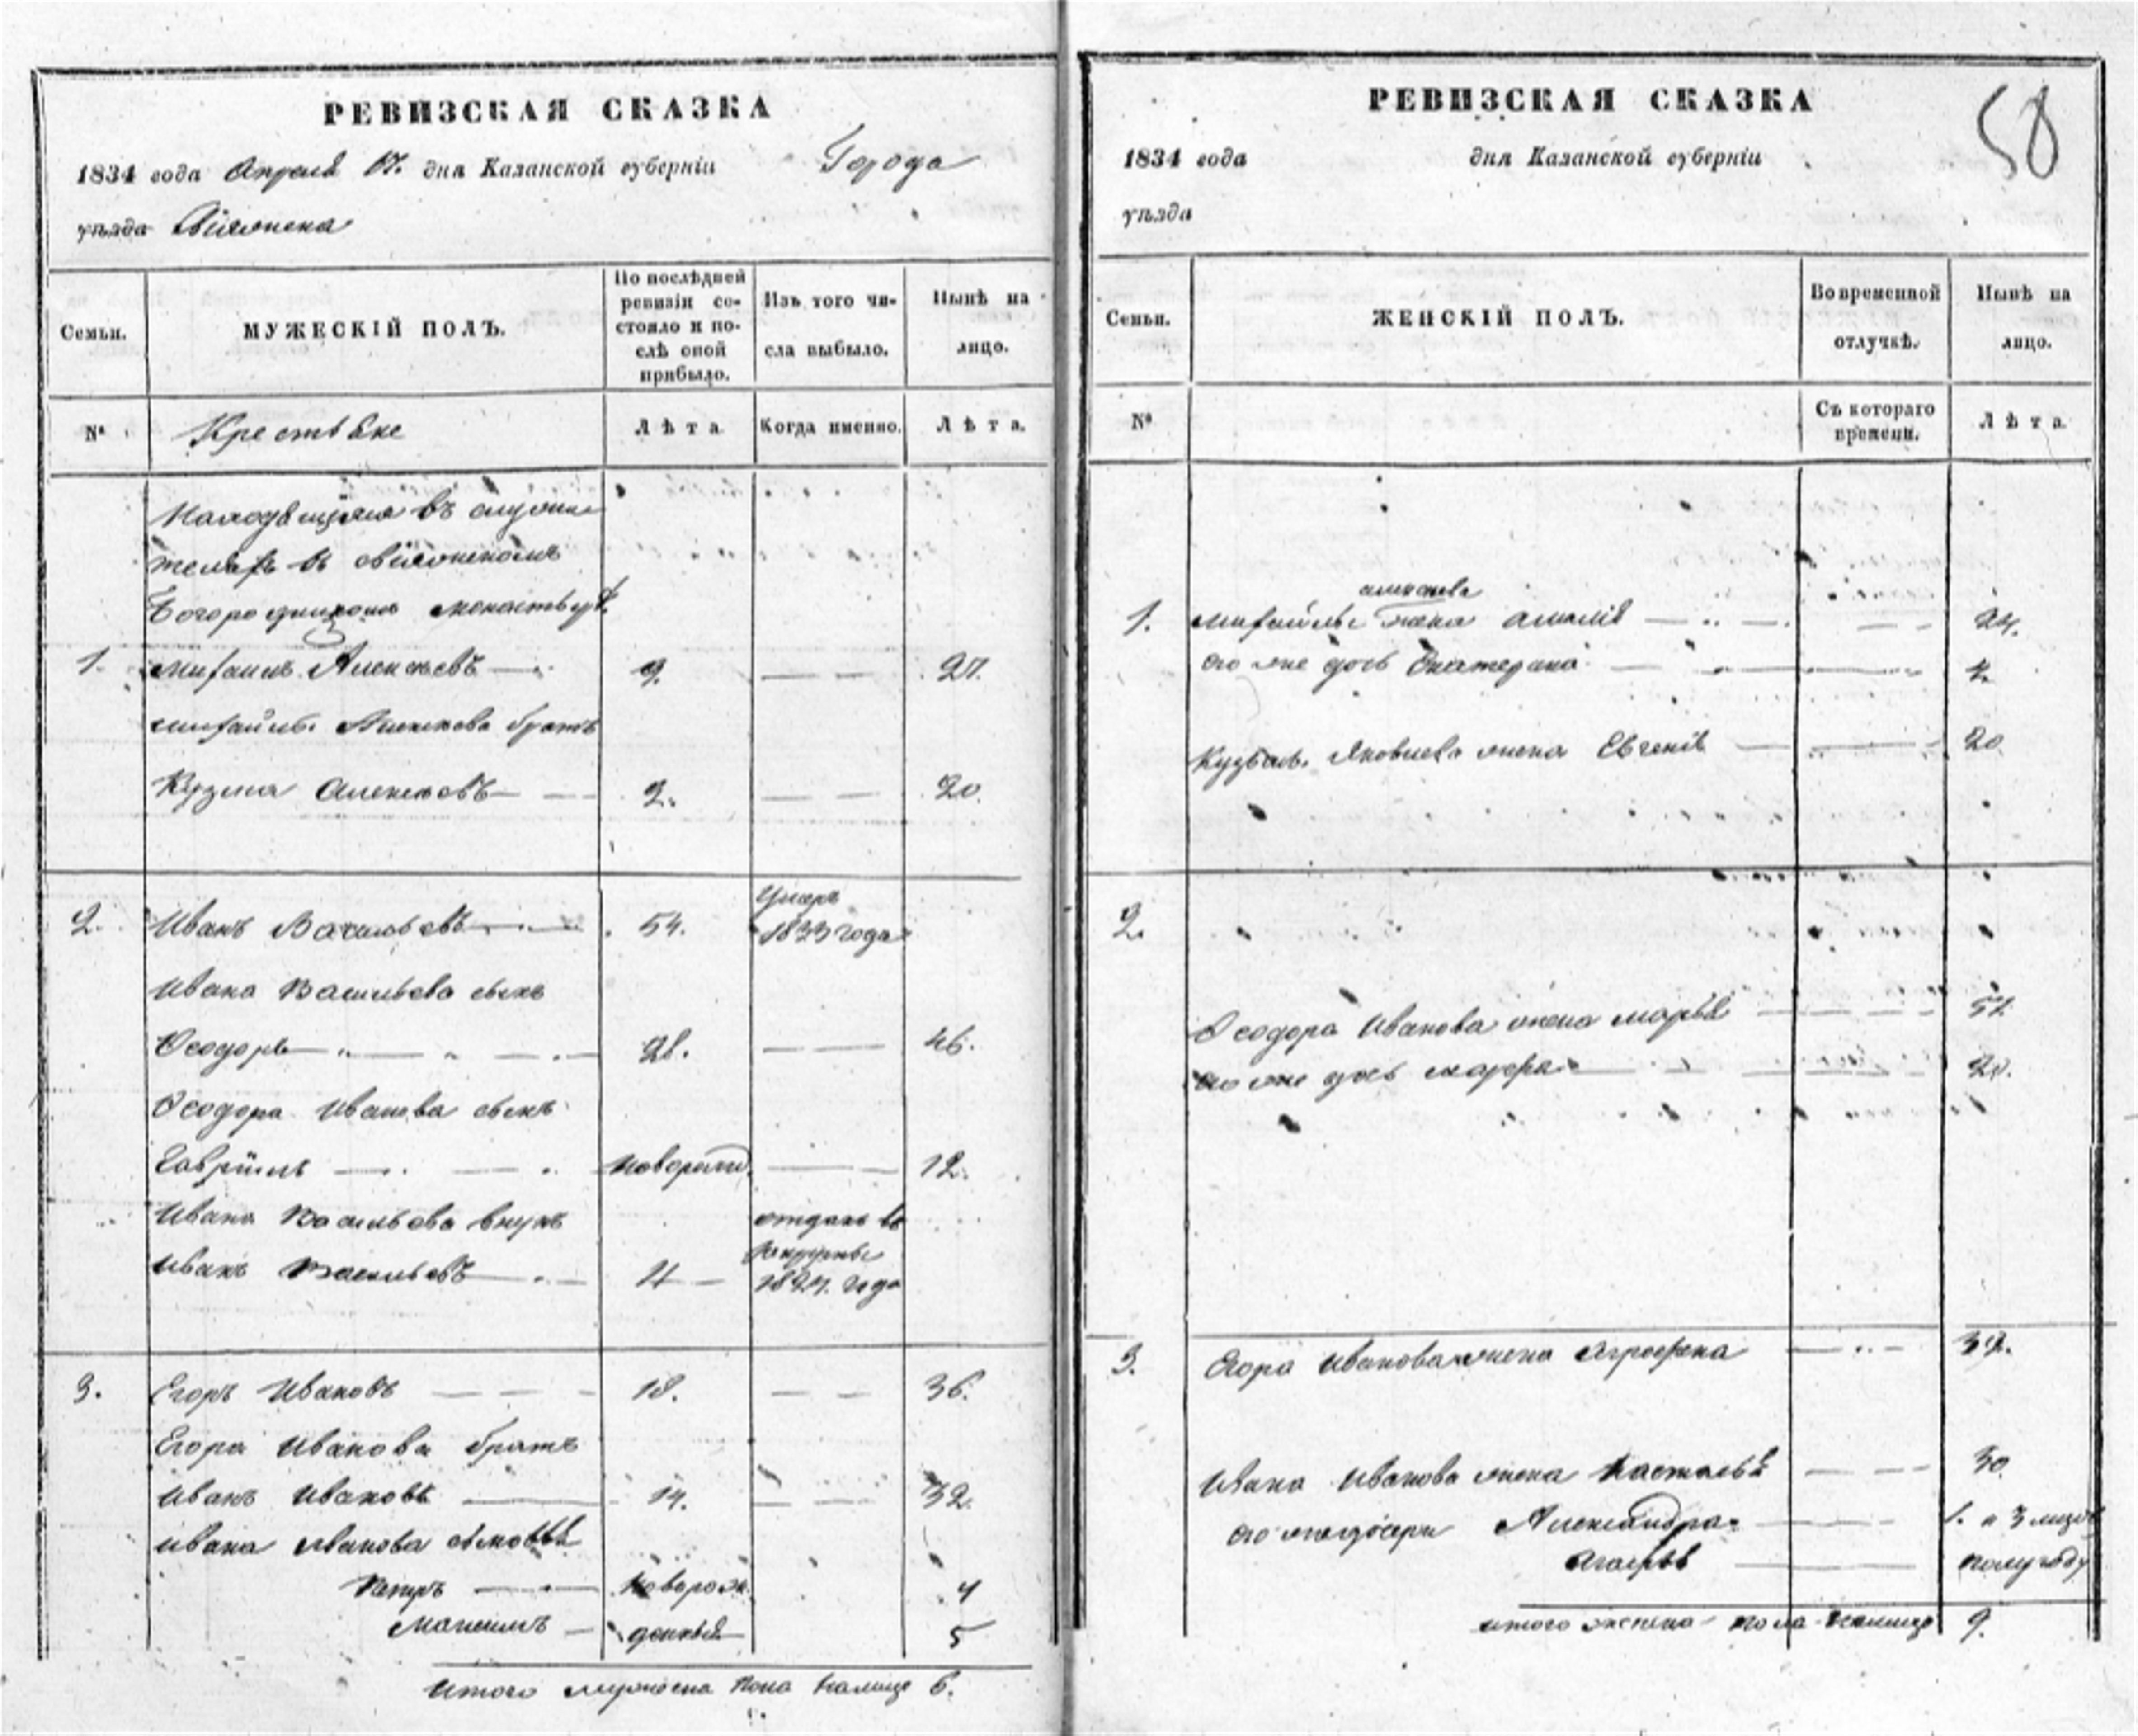 РЕВИЗСКАЯ СКАЗКА
1834 года Апреля 17. дня Казанской губернiи Города
уѣзда Свiяжска
Семьи.
МУЖЕСКIЙ ПОЛЪ.
По послѣдней ревизiи состояло и послѣ оной прибыло.
Изъ того числа выбыло.
Нынѣ на лицо.
№
Крестьяне
Лѣта
Когда именно.
Лѣта.
Находящiяся въ служи
теляхъ въ свiяжскомъ
Богородицкомъ монастырѣ
1. Михаилъ Алексѣевъ 9. 27.
михайлы Алексѣева братъ
Кузма Алексѣевъ 2. 20.
2. Иванъ Васильевъ 54. Умеръ 1833 года
Ивана Васильева сынъ
Ѳеодоръ 28. 46.
Ѳеодора Иванова сынъ
Гаврiилъ новорожд. 12.
Ивана Васильева внукъ
Иванъ Васильевъ 11 отданъ въ рекруты 1827. года
3. Егоръ Ивановъ 18. 36.
Егора Иванова братъ
Иванъ Ивановъ 14. 32.
Ивана Иванова сыновья
Петръ новорож 4
Максимъ денныя 5
Итого мужеска пола налицо 6.
РЕВИЗСКАЯ СКАЗКА
58
1834 года дня Казанской губернiи
уѣзда
Семьи.
ЖЕНСКIЙ ПОЛЪ.
Во временной отлучкѣ.
Нынѣ на лицо.
№
Съ котораго времени.
Лѣта.
алексѣева
1. михайлы жена 24.
его же дочь Екатерина 4.
Кузьмы Яковлева жена Евгенiя 20
2.
Ѳеодора Иванова жена марья
его же дочь марфа 20.
3. Егора Иванова жена Агрофена 32.
Ивана Иванова жена Настасья 30
его же дочери Александра
полугоду
итого женска пола налицо 9.